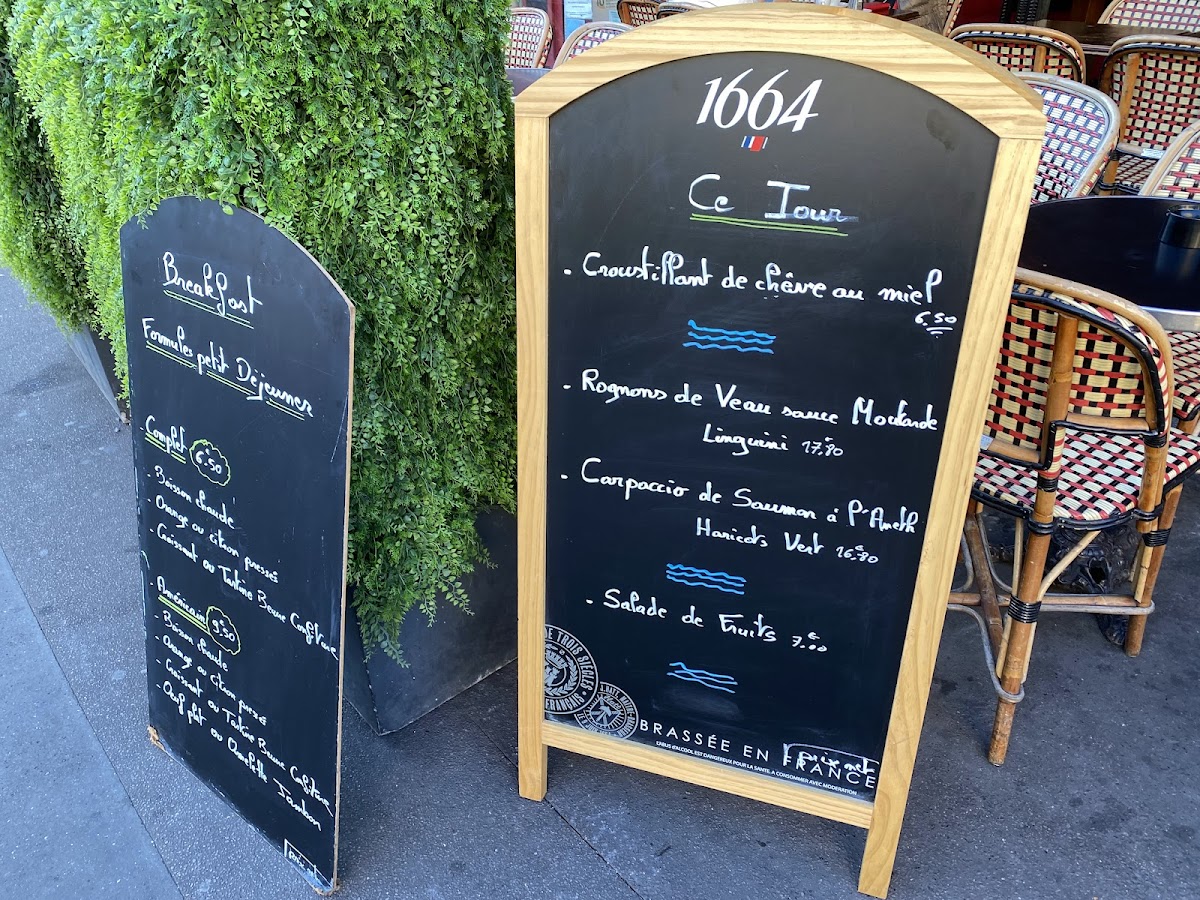 Breakfast
Formules petit Dejeuner
Complet 6.50
- Boisson chaude
- Orange ou citron pressés
- Croissant ou Tartine Beurre Confiture
- Américain 9.50
- Boisson chaude
- Orange ou citron pressé
- Croissant ou Tartine Beurre Confiture
- Oeuf plat ou Omelette Jambon
1664
Ce Jour
- Croustillant de chêvre au miel
6.50
- Rognons de Veau sauce Moutarde
Linguini 17,80
- Carpaccio de Saumon à l'Aneth
Haricots Vert 16,80
- Salade de Fruits 7.00
DE TROIS SIÈCLES
BRASSÉE EN FRANCE
prix net
L'ABUS D'ALCOOL EST DANGEREUX POUR LA SANTÉ. A CONSOMMER AVEC MODERATION